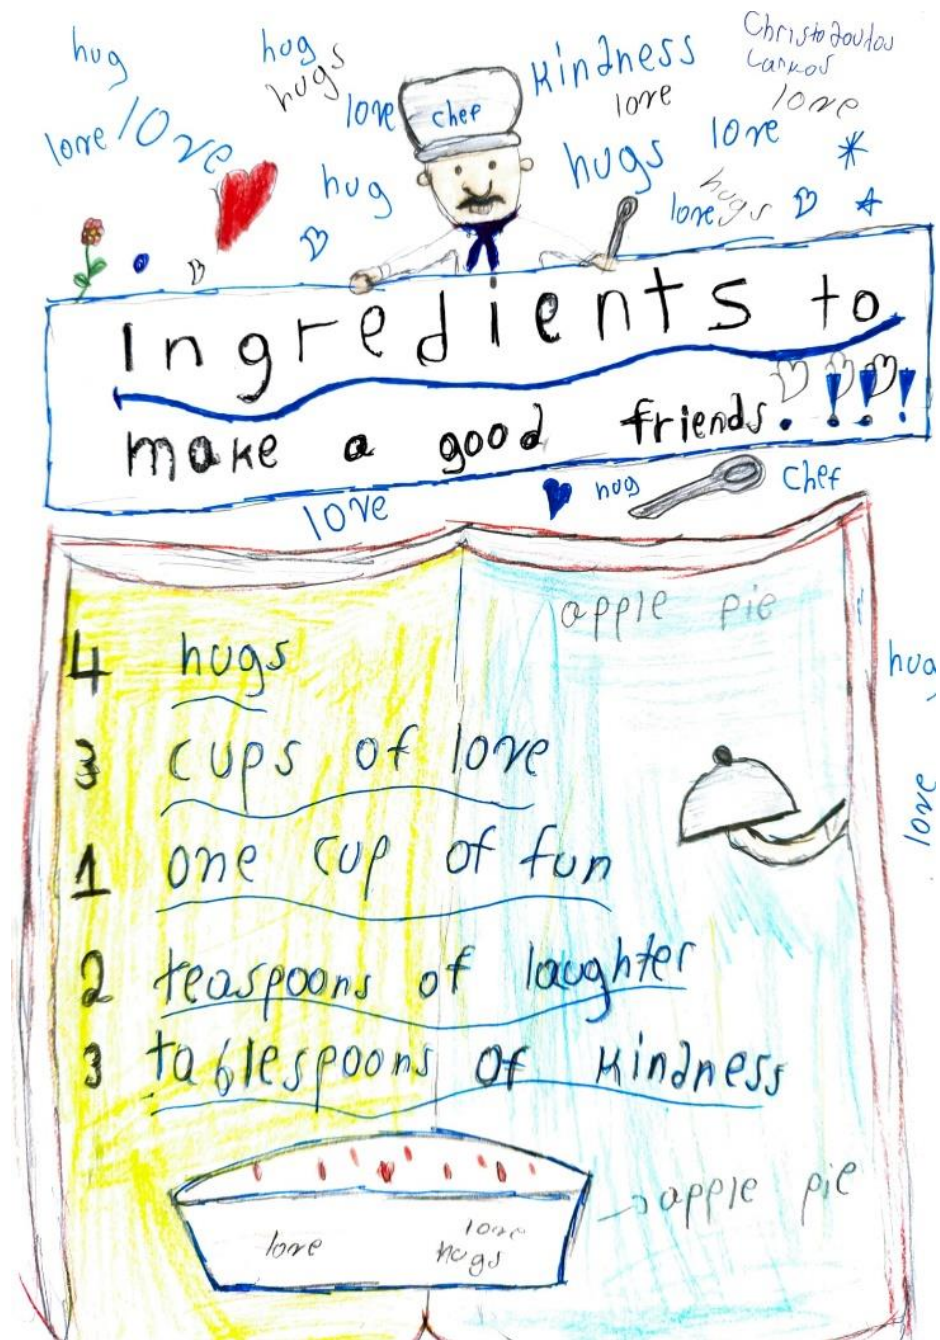 hug
hug
hugs
kindness
Christodoulou
love
love
love
love
love
Chef
love
hug
hugs
hugs
love
Ingredients to
make a good friends. !!!
love
hug
Chef
apple pie
4 hugs
hug
3 cups of love
love
1 one cup of fun
2 teaspoons of laughter
3 tablespoons of kindness
apple pie
love
love
hugs